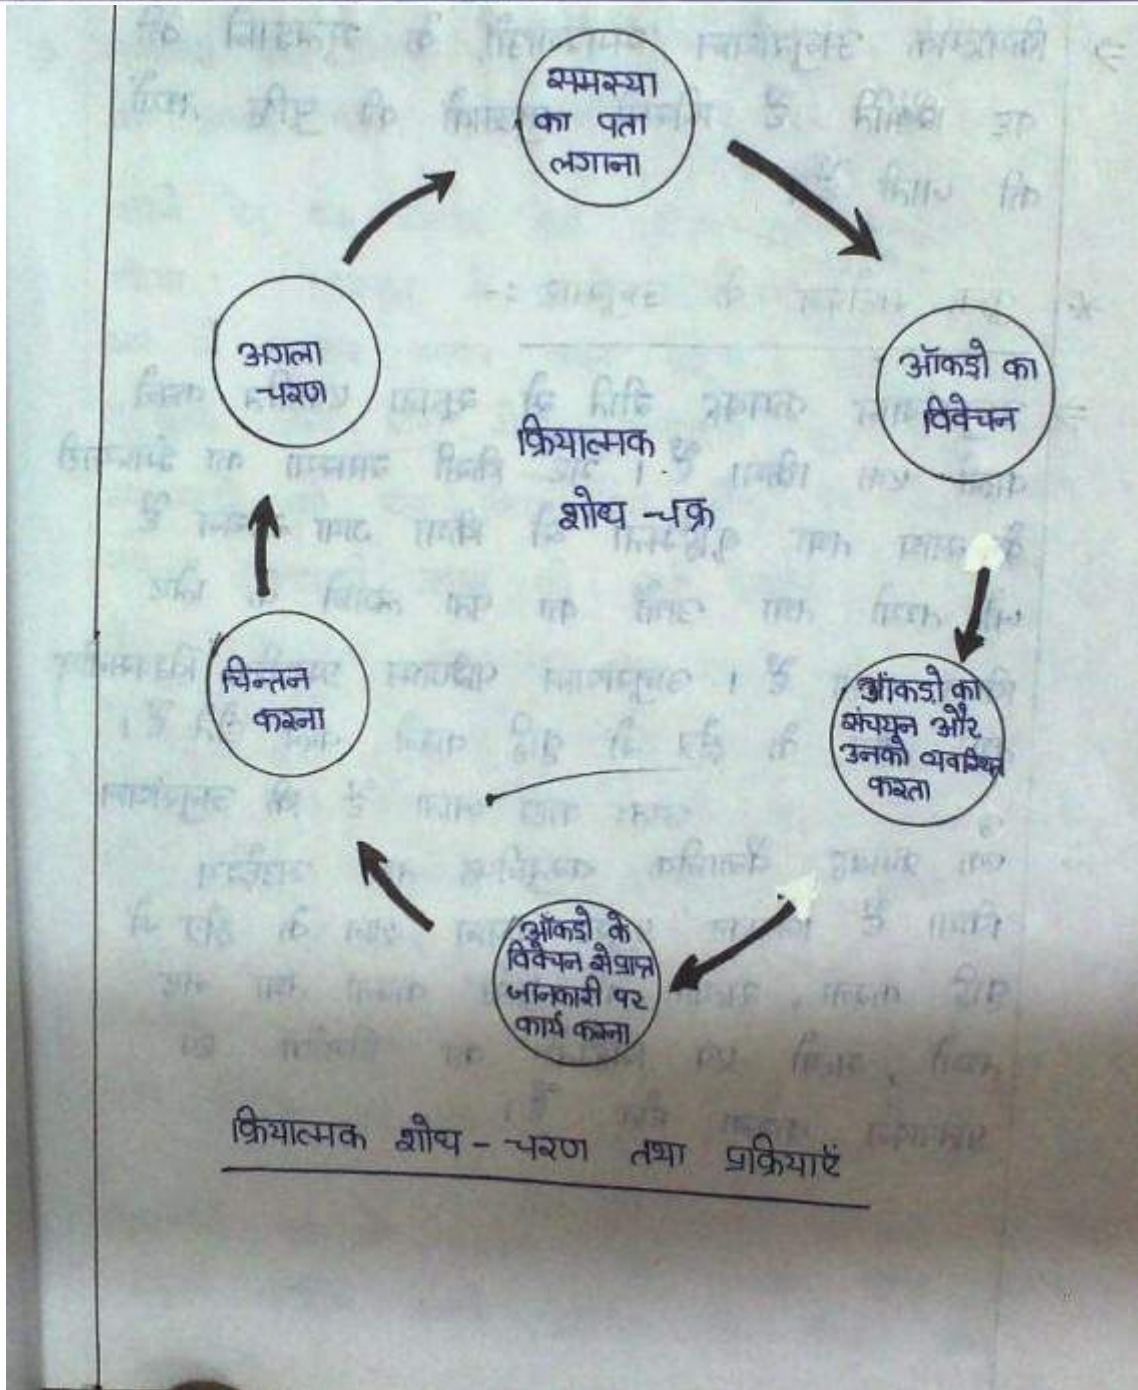 समस्या
का पता
लगाना
ऑकडो का
विवेचन
ऑकडो का
संचयन और
उनको व्यवस्थित
करता
ऑकडो के
विवेचन से प्राप्त
जानकारी पर
कार्य करना
चिन्तन
करना
अगला
चरण
क्रियात्मक
शोध - चक्र
क्रियात्मक शोध - चरण तथा प्रक्रियाएँ